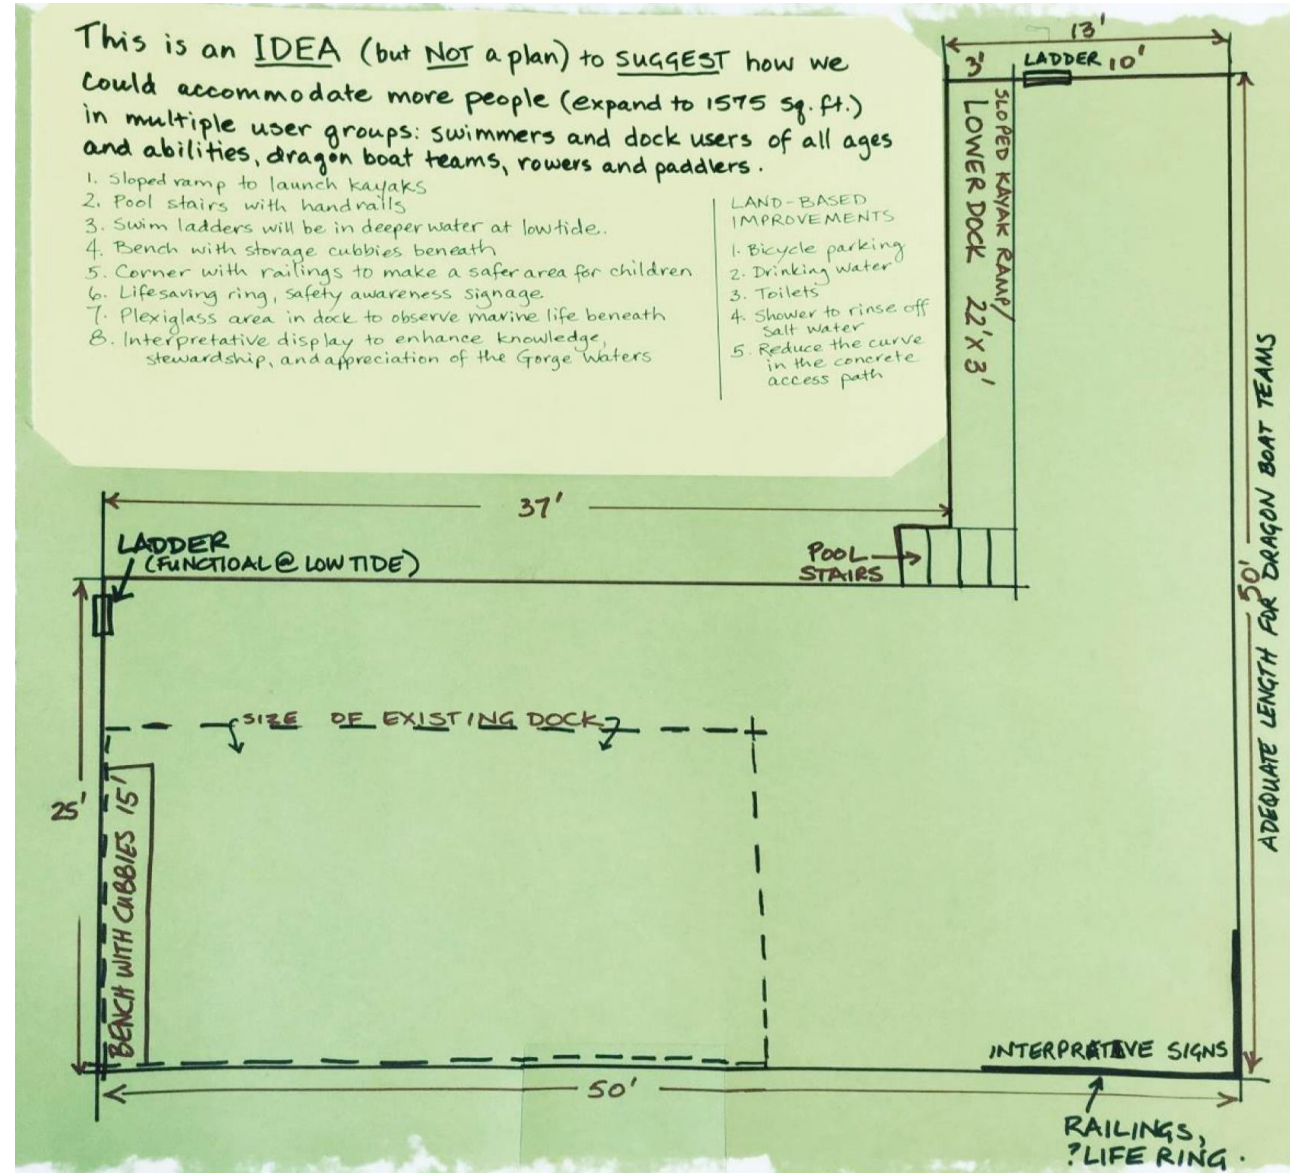 This is an IDEA (but NOT a plan) to SUGGEST how we
could accommodate more people (expand to 1575 sq. ft.)
in multiple user groups: swimmers and dock users of all ages
and abilities, dragon boat teams, rowers and paddlers.
1. Sloped ramp to launch kayaks
2. Pool stairs with handrails
3. Swim ladders will be in deeper water at low tide.
4. Bench with storage cubbies beneath
5. Corner with railings to make a safer area for children
6. Lifesaving ring, safety awareness signage
7. Plexiglass area in dock to observe marine life beneath
8. Interpretative display to enhance knowledge,
stewardship, and appreciation of the Gorge Waters
LAND-BASED
IMPROVEMENTS
1. Bicycle parking
2. Drinking water
3. Toilets
4. Shower to rinse off
salt water
5. Reduce the curve
in the concrete
access path
13'
3'
LADDER 10'
SLOPED KAYAK RAMP/
LOWER DOCK 22' X 3'
50'
ADEQUATE LENGTH FOR DRAGON BOAT TEAMS
37'
LADDER
(FUNCTIOAL @ LOW TIDE)
POOL
STAIRS
SIZE OF EXISTING DOCK
25'
BENCH WITH CUBBIES 15'
INTERPRETATIVE SIGNS
50'
RAILINGS,
?LIFE RING.